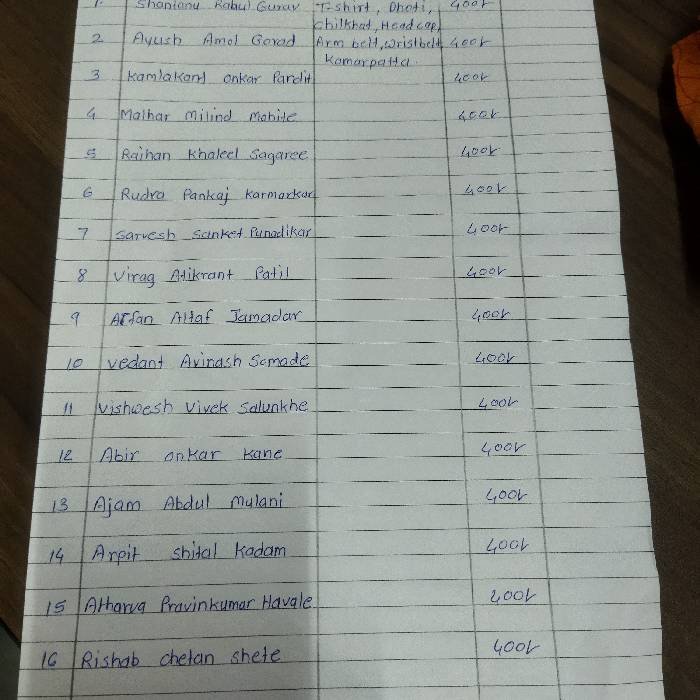 1. Shantanu Rahul Gurav T-shirt, Dhoti, 400/-
Chilkhat, Headcap,
2 Ayush Amol Gorad Arm belt, wristbelt 400/-
Kamarpatta.
3 Kamlakant onkar Pandit 400/-
4 Malhar milind Mohite 400/-
5 Raihan Khaleel Sagaree 400/-
6 Rudra Pankaj Karmarkar 400/-
7 Sarvesh Sanket Punadikar 400/-
8 Virag Atikrant Patil 400/-
9 Arfan Altaf Jamadar 400/-
10 Vedant Avinash Samade 400/-
11 Vishwesh Vivek Salunkhe 400/-
12 Abir onkar Kane 400/-
13 Ajam Abdul Mulani 400/-
14 Arpit shital Kadam 400/-
15 Atharva Pravinkumar Havale 400/-
16 Rishab chetan shete 400/-